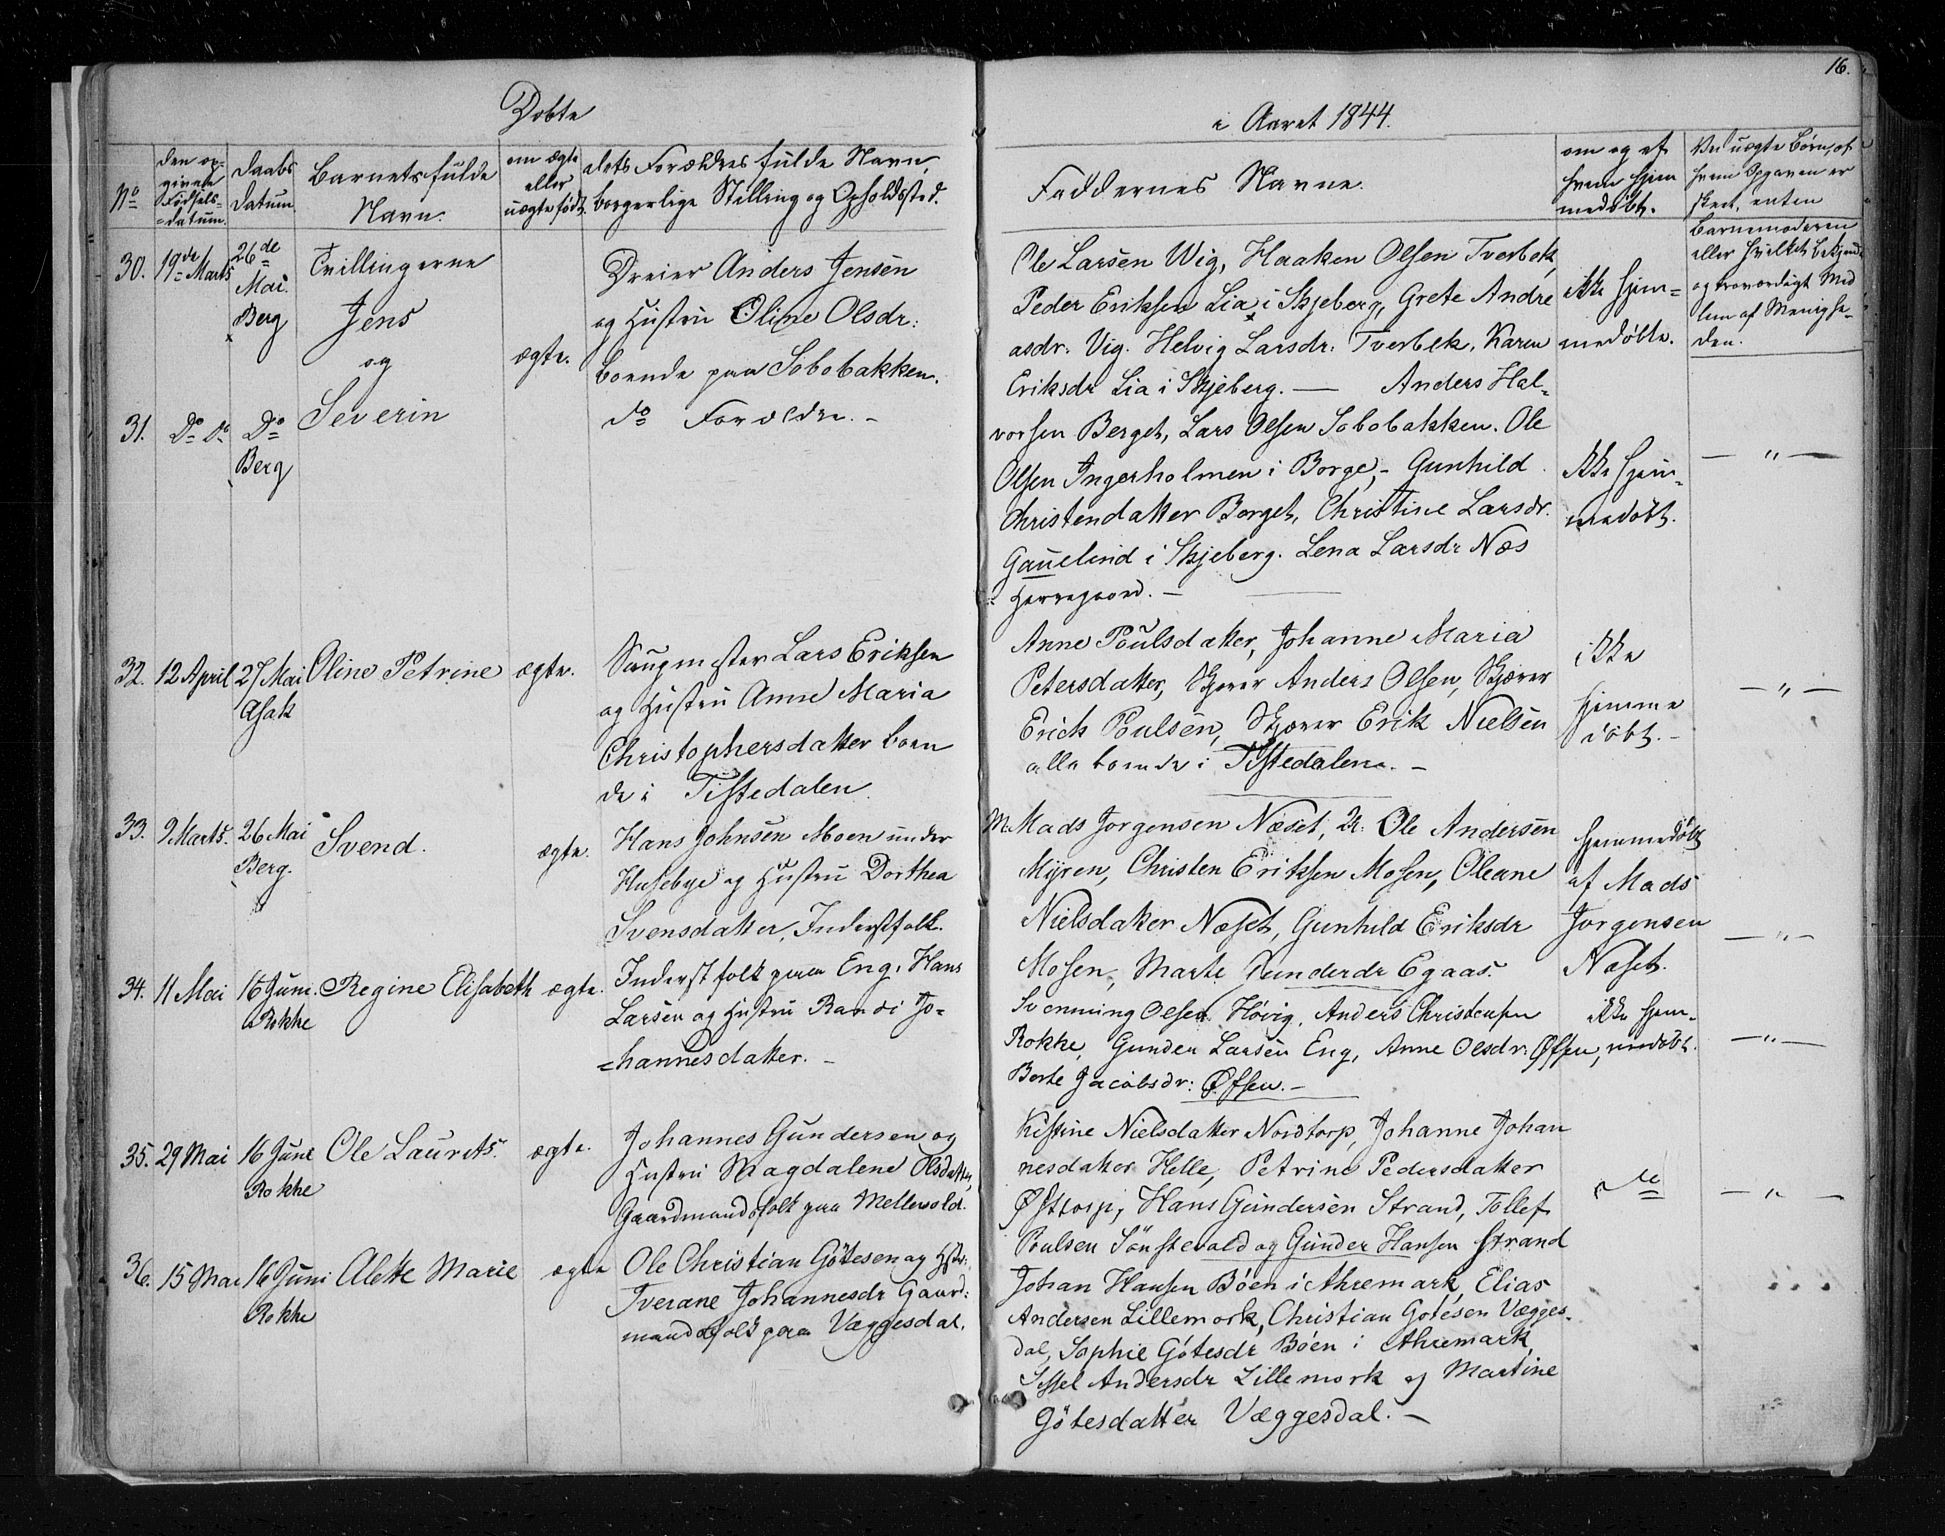 16.
Døbte
i Aaret 1844.
No
den op-
givne
Fødsels-
datum.
Daabs
Datum.
Barnets fulde
Navn.
om ægte
eller
uægte født.
dets Forældres fulde Navn,
borgerlige Stilling og Opholdsted.
Faddernes Navne.
om og af
hvem hjem
medøbt.
Ved uægte Børn, af
hvem Opgaven er
skeet, enten
Barnemoderen
eller hvilket bekjendt
og troværdigt Med
lem af Menighe-
den.
30.
19de Marts
26de
Mai.
Berg
Tvillingerne
Jens
og
ægte.
Dreier Anders Jensen
og Hustru Oline Olsdr:
boende paa Sobobakken.
Ole Larsen Wig, Haaken Olsen Tverbek,
Peder Eriksen Lia i Skjeberg, Grete Andre
asdr. Vig. Helvig Larsdr. Tverbek, Karen
Eriksdr Lia i Skjeberg. — Anders Hal-
ikke hjem-
medøbte.
31.
Do Do
Do
Berg
Severin
do Forældre. –
vorsen Berget, Lars Olsen Sobobakken. Ole
Olsen Ingerholmen i Borge, Gunhild
Christendatter Berget, Christine Larsdr.
Gauelind i Skjeberg. Lena Larsdr Næs
Herregaard. –
ikke hjem-
medøbt.
— " —
32.
12 April
27 Mai
Asak
Oline Petrine
ægte.
Saugmester Lars Eriksen
og Hustru Anne Maria
Christophersdatter boen
de i Tistedalen.
Anne Poulsdatter, Johanne Maria
Petersdatter, Skjærer Anders Olsen, Skjærer
Erick Poulsen, Skjærer Erik Nielsen
alle boende i Tistedalene. –
ikke
hjemme
døbt. –
— " —
33.
9 Marts.
26 Mai
Berg.
Svend.
ægte.
Hans Johnsen Moen under
Husebye og Hustru Dorthea
Svensdatter, Inderstfolk.
Mads Jorgensen Næset, Ole Andersen
Myren, Christen Eriksen Mosen, Oleane
Nielsdatter Næset, Gunhild Eriksdr
Mosen, Marte Gunderdr Egaas.
hjemmedøbt
af Mads
Jorgensen
Næset.
— " —
34.
11 Mai
16 Juni.
Rokke
Regine Elisabeth
ægte.
Inderstfolk paa Eng, Hans
Larsen og Hustru Randi Jo-
=hannesdatter. –
Svenning Olsen Høvig, Anders Christensen
Rokke, Gunder Larsen Eng, Anne Olsdr. Øfsen,
Berte Jacobsdr: Øfsen. –
ikke hjem-
medøbt.
— " —
35.
29 Mai
16 Juni
Rokke
Ole Laurits.
ægte.
Johannes Gundersen og
Hustru Magdalene Olsdatter,
Gaardmandsfolk paa Mellevold.
Kistine Nielsdatter Nordtorp, Johanne Johan
nesdatter Helle, Petrine Pedersdatter
Østtorp, Hans Gundersen Strand, Tollef
Poulsen Sønstevold og Gunder Hansen Strand
— " —
36.
15 Mai
16 Juni
Rokke
Alette Marie
ægte
Ole Christian Götesen og Hstr:
Iverane Johannesdr Gaard:
mandsfolk paa Væggesdal.
Johan Hansen Bøen i Aremark, Elias
Andersen Lillemork, Christian Gotesen Vægges-
dal, Sophie Götesdr Bøen i Aremark,
Sissel Andersdr Lillemork og Martine
Götesdatter Væggesdal. –